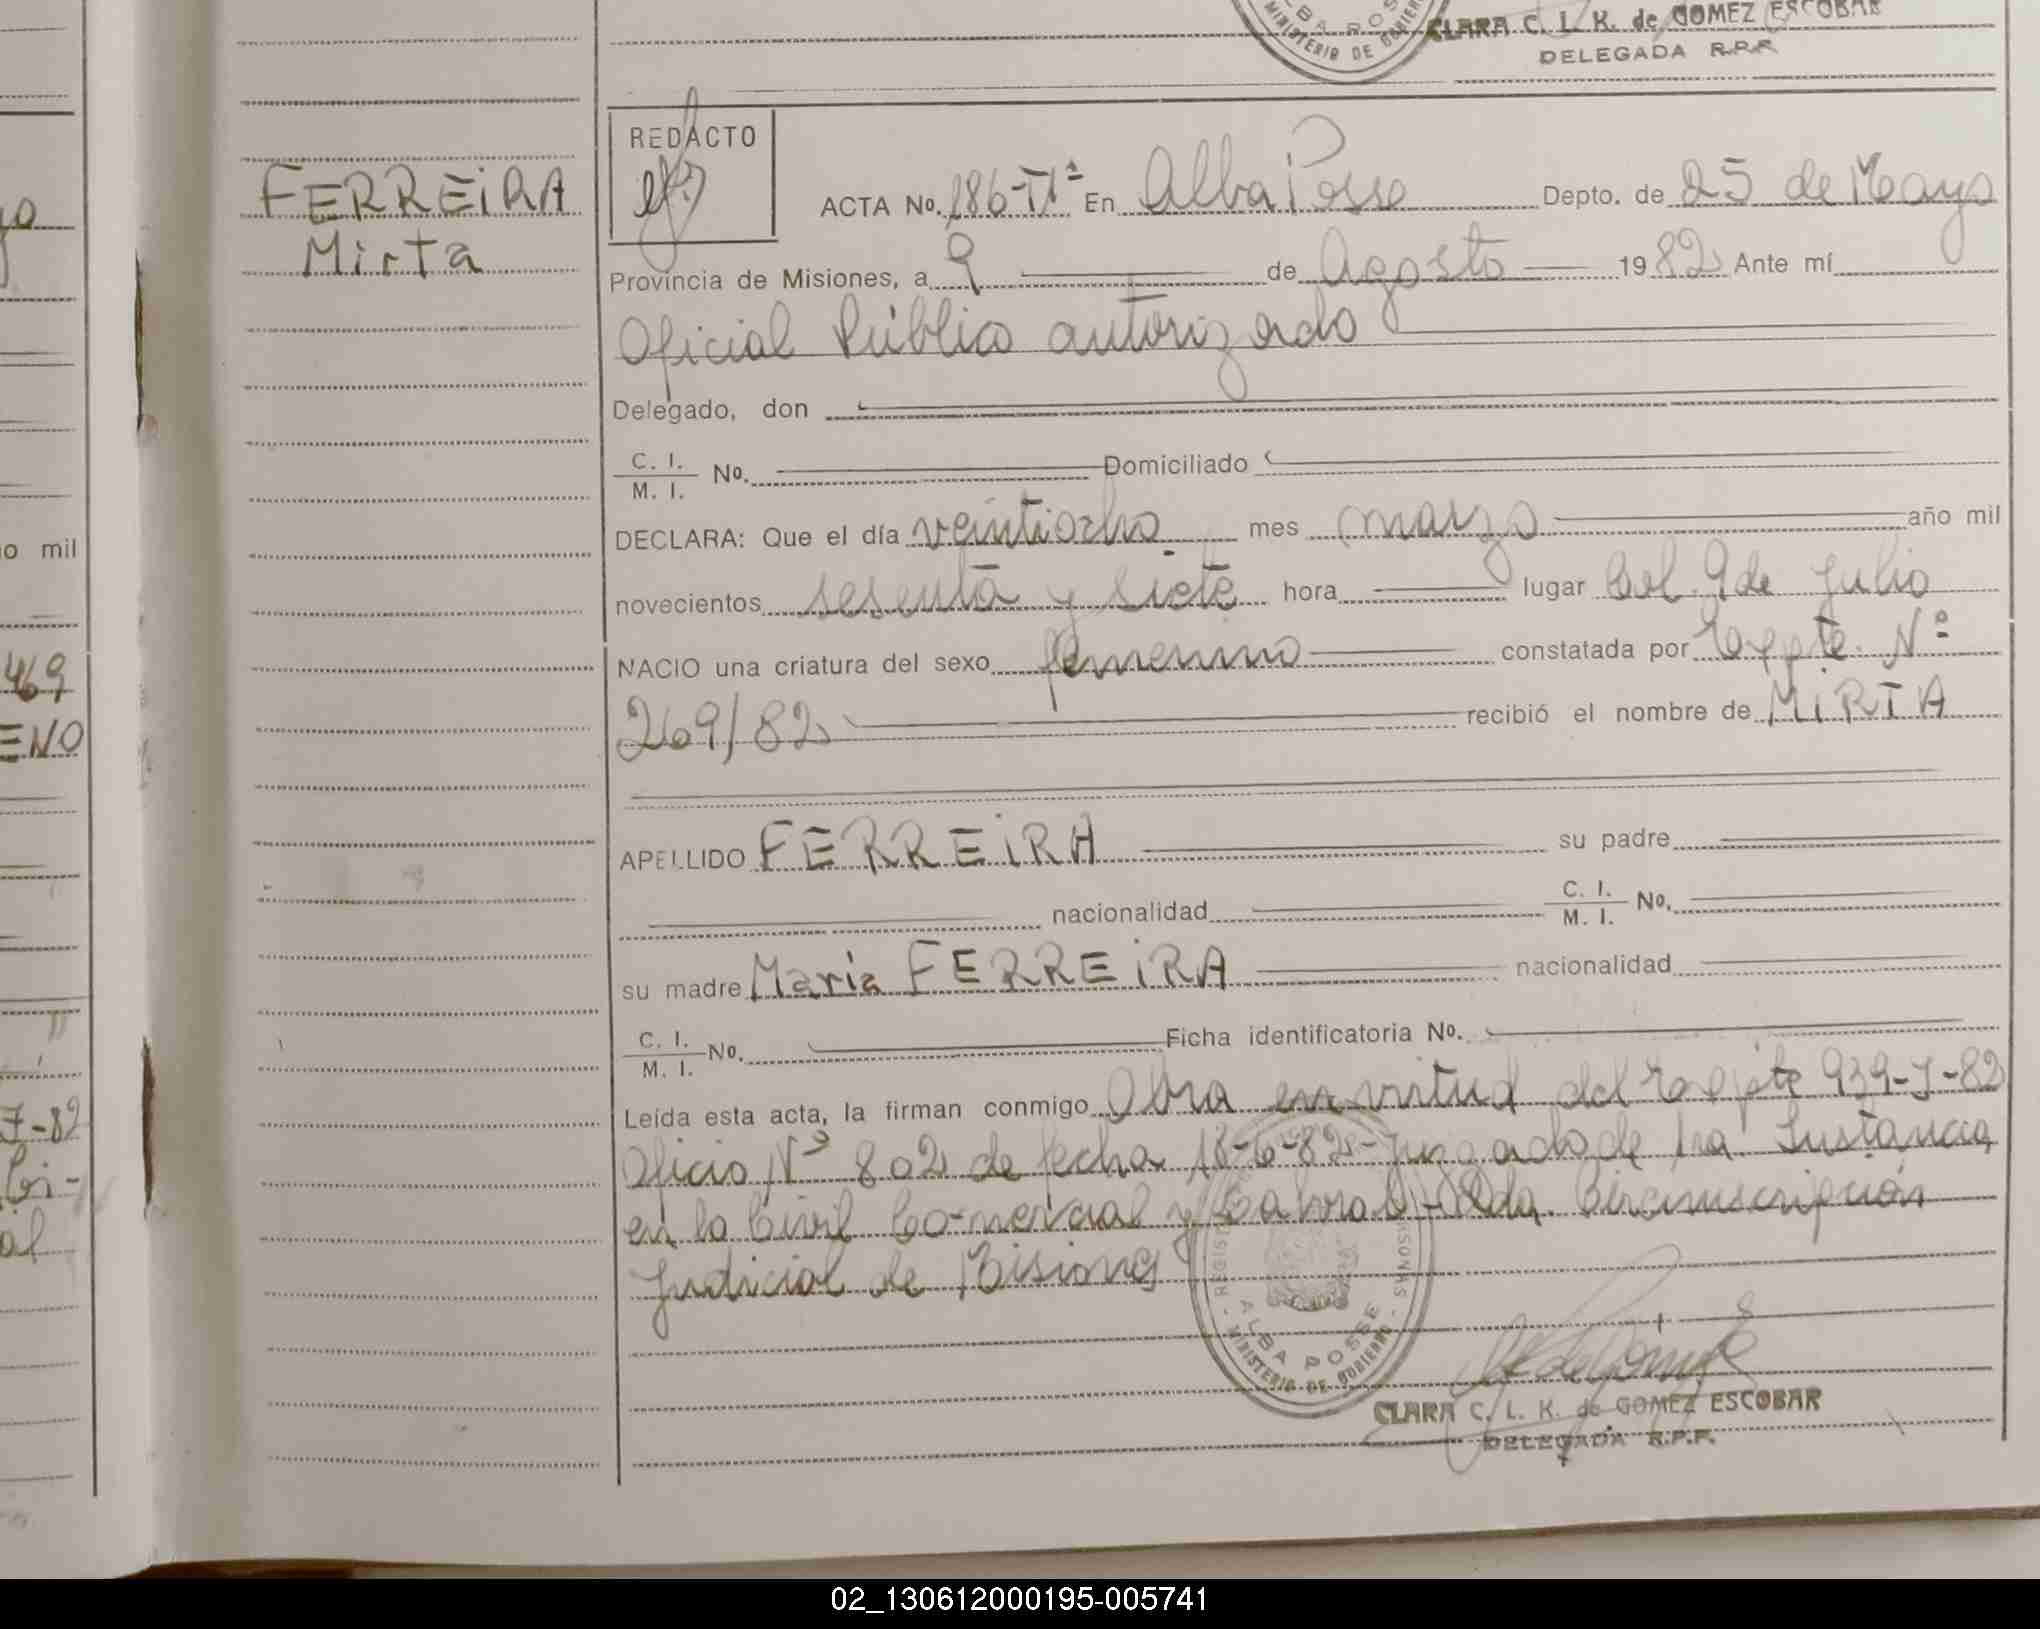 CLARA C. L. K. de GOMEZ ESCOBAR
DELEGADA R.P.P.
ALBA POSSE
MINISTERIO DE GOBIERNO
FERREiRA
Mirta
REDACTO
ACTA No. 186-Tº En Alba Posse Depto. de 25 de Mayo
Provincia de Misiones, a 9 de Agosto 1982 Ante mí
Oficial Público autorizado
Delegado, don
C. I. M. I. No. Domiciliado
DECLARA: Que el día veintiocho mes marzo año mil
novecientos sesenta y siete hora lugar Col. 9 de Julio
NACIO una criatura del sexo femenino constatada por Expte. Nº
269/82 recibió el nombre de MiRTA
APELLIDO FERREiRA su padre
nacionalidad C. I. M. I. No.
su madre María FERREiRA nacionalidad
C. I. M. I. No. Ficha identificatoria No.
Leída esta acta, la firman conmigo Obra en virtud del Expte 939-J-82
Oficio Nº 802 de fecha 18-6-82-Juzgado de 1ra. Instancia
en lo Civil Comercial y Laboral-2da. Circunscripción
Judicial de Misiones
ALBA POSSE
MINISTERIO DE GOBIERNO
CLARA C. L. K. de GOMEZ ESCOBAR
DELEGADA R.P.P.
o mil
469
ENO
7-82
al
02_130612000195-005741